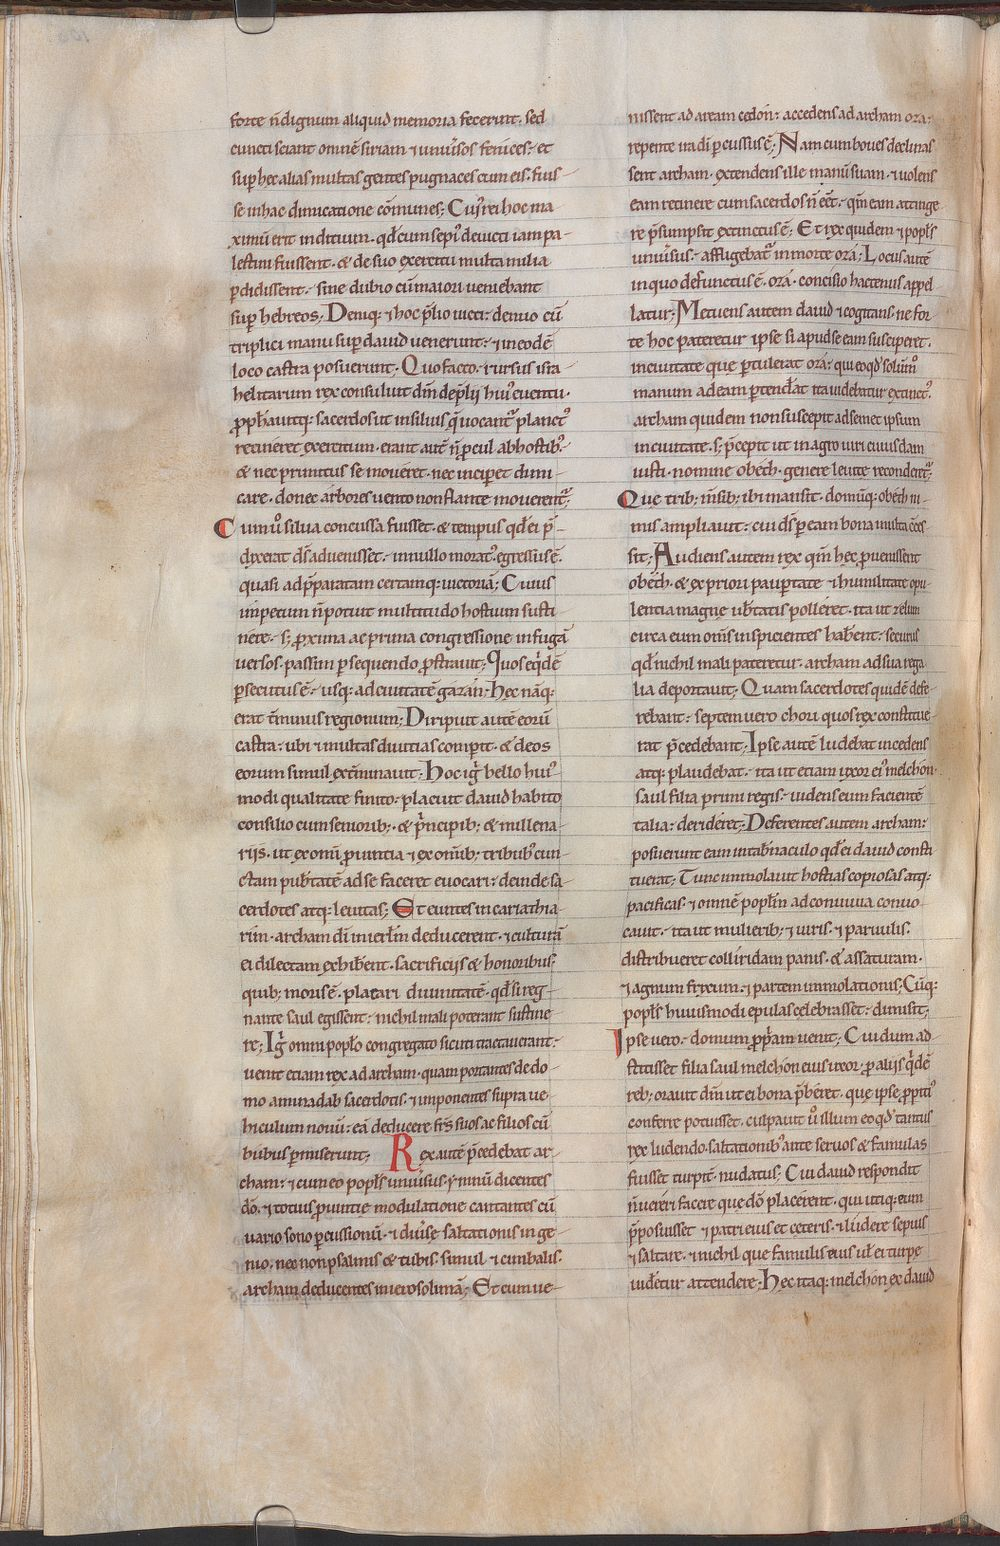 forte n̄ dignum aliquid memoria fecerint. sed
cuncti sciant omnē siriam ⁊ uniu̾sos fenices. et
sup̱ hec alias multas gentes pugnaces cum eis fuis-
se in hac dimicatione cōmunes; Cui᷒ rei hoc ma-
ximū erit inditium. qđ cum sepi᷒ deuicti iam pa-
lestini fuissent. & de suo exercitu multa milia
p̱didissent. sine dubio cū maiori ueniebant
sup̱ hebreos; Deniq: ⁊ hoc p̄lio uicti. denuo cū
triplici manu sup̱ dauid uenerunt. ⁊ in eodē
loco castra posuerunt. Quo facto. rursus isra-
helitarum rex consuluit dn̄m de p̄lij hui᷒ euentu.
pro ph̄auitq: sacerdos ut in siluis q̄ uocant᷑ planct᷒
retineret exercitum. erant autē n̄ procul ab hostib᷒.
& nec primitus se moueret. nec incip̱et dimi-
care. donec arbores uento non flante mouerent᷑.
Cum u̾o silua concussa fuisset. & tempus qđ ei p̄-
dixerat ds̄ aduenisset. in nullo morat᷒. egressus ē
quasi ad p̄paratam certamq: uictoriā; Cuius
impetum n̄ potuit multitudo hostium susti-
nere. s; proxima ac prima congressione in fugā
uersos. passim p̱sequendo prostrauit; Quos eqidē
p̱secutus ē. usq: ad ciuitatē gazan; Hec nāq:
erat t̄minus regionum; Diripuit autē eorū
castra. ubi ⁊ multas diuitias comp̱it. & deos
eorum simul ext̄minauit; Hoc igi᷑ bello hui᷒-
modi qualitate finito. placuit dauid habito
consilio cum senioribꝫ. & principibꝫ & millena-
riis. ut ex omni prouintia ⁊ ex omībꝫ tribub᷒ cun-
ctam pub̄tatē ad se faceret euocari. deinde sa-
cerdotes atq: leuitas; Et euntes in cariathia-
rim. archam dī in ierl̄m deducerent. ⁊ culturā
ei dilectam exhib̄ent. sacrificiis & honoribus.
quibꝫ moris ē. placari diuinitatē. qđ si reg-
nante saul egissent. nichil mali poterant sustine-
re; Igi᷑ omni poplo congregato sicuti tractauerant.
uenit etiam rex ad archam. quam portantes de do-
mo aminadab sacerdotis. ⁊ imponentes supra ue-
hiculum nouū. eā deducere fr̄s suos ac filios cū
bubus p̱miserunt; Rex autē p̄cedebat ar-
cham. ⁊ cum eo popls uniu̾sus. ymnū dicentes
dō. ⁊ totius prouintie modulatione cantantes cū
uario sono p̱cussionū. ⁊ diu̾se saltationis in ge-
nio. nec non psalmis & tubis. simul ⁊ cimbalis.
archam deducentes in ierosolimā; Et cum ue-
nissent ad aream cedon. accedens ad archam oza.
repente ira dī p̱cussus ē; Nam cum boues declinas-
sent archam. extendens ille manū suam. ⁊ uolens
eam retinere cum sacerdos n̄ eēt. qm̄ eam attinge-
re p̄sumpsit extinctus ē; Et rex quidem ⁊ popls
uniu̾sus. affligebat᷑ in morte oza; Locus autē
in quo defunctus ē. oza. concisio hactenus appel-
latur; Metuens autem dauid ⁊ cogitans. ne for-
te hoc pateretur ipse si apud se eam susciperet.
in ciuitate que p̱tulerat oza. qui eo qđ solum᷒
manum ad eam p̱tend̄at ita uidebatur extinct᷒.
archam quidem non suscepit ad semet ipsum
in ciuitate. s; p̄cepit ut in agro uiri cuiusdam
iusti. nomine obeth. genere leuite reconderet᷑;
Que tribꝫ m̄sibꝫ ibi mansit. domūq: obeth ni-
mis ampliauit. cui ds̄ p̱ eam bona multa cōces-
sit; Audiens autem rex qm̄ hec prouenissent
obeth. & ex priori paup̱tate ⁊ humilitate opu-
lentia magne ub̄tatis polleret. ita ut zelum
circa eum omīs inspicientes hab̄ent. securus
qđ nichil mali pateretur. archam ad sua rega-
lia deportauit; Quam sacerdotes quidē defe-
rebant. septem uero chori quos rex constitue-
rat p̄cedebant; Ipse autē ludebat incedens
atq: plaudebat. ita ut etiam uxor ei᷒ melchon
saul filia primi regis. uidens eum facientē
talia. derideret; Deferentes autem archam.
posuerunt eam in tab̄naculo qđ ei dauid consti-
tuerat; Tunc immolauit hostias copiosas atq:
pacificas. ⁊ omnē popl̄m ad conuiuia conuo-
cauit. ita ut mulieribꝫ ⁊ uiris. ⁊ paruulis.
distribueret colliridam panis. & assaturam.
⁊ agnum frixum. ⁊ partem immolationis; Cūq:
popls huiusmodi epulas celebrasset. dimisit;
Ipse uero. domum propriam uenit; Cui dum ad-
stitisset filia saul melchon eius uxor. pro aliis qidē
rebꝫ orauit dn̄m ut ei bona p̄beret. que ipse propiti᷒
conferre potuisset. culpauit u̾o illum eo qđ tantus
rex ludendo. saltationibꝫ ante seruos & famulas
fuisset turpit̾ nudatus; Cui dauid respondit
n̄ uereri facere que dō placerent. qui utiq: eum
p̄posuisset ⁊ patri eius et ceteris. ⁊ ludere sepius
⁊ saltare. ⁊ nichil que famulis eius ul̄ ei turpe
uidetur attendere; Hec itaq: melchon ex dauid